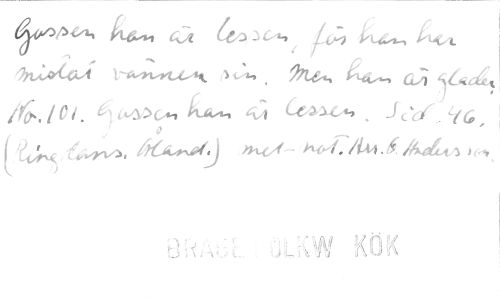 Gossen han är lessen, för han har
mistat vännen sin. Men han är glader,
No. 101. Gossen han är lessen. Sid. 46.
(Ringdans. Åland.) mel-not. Arr. O. Andersson.
KÖK